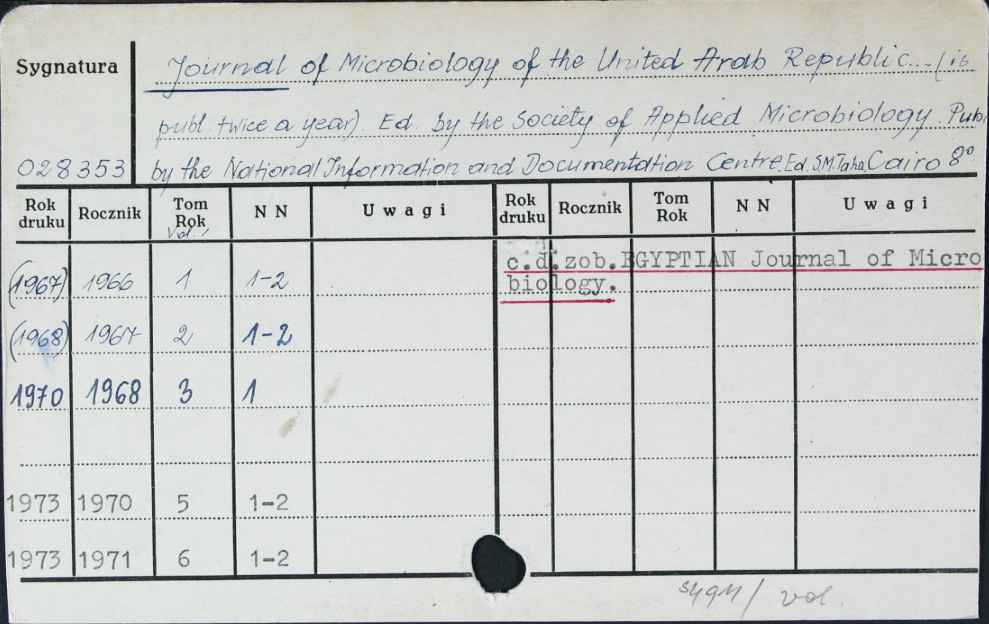 Sygnatura
Journal of Microbiology of the United Arab Republic... (is
publ. twice a year). Ed. by the Society of Applied Microbiology. Publ.
028353 by the National Information and Documentation Centre. Ed. S.M. Taha. Cairo 8°
Rok druku Rocznik Tom Rok Vol. N N Uwagi Rok druku Rocznik Tom Rok N N Uwagi
c.d. zob. EGYPTIAN Journal of Micro
(1967) 1966 1 1-2 biology.
(1968) 1967 2 1-2
1970 1968 3 1
1973 1970 5 1-2
1973 1971 6 1-2
vol.